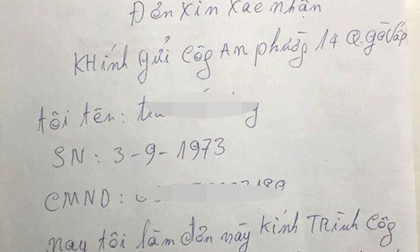 Đơn xin xác nhận
Khính gửi Côg An phường 14 Q. gò Vấp
tôi tên:
SN: 3-9-1973
CMND:
Nay tôi làm đơn này Kính Trình Côg